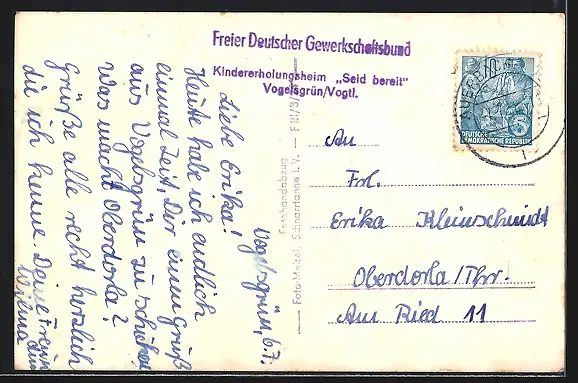 Freier Deutscher Gewerkschaftsbund
Kindererholungsheim „Seid bereit"
Vogelsgrün/Vogtl.
DEUTSCHE
DEMOKRATISCHE REPUBLIK
Vogelsgrün, 6.7.
Liebe Erika!
Heute habe ich endlich
einmal Zeit, Dir einen Gruß
aus Vogelsgrün zu schicken.
Was macht Oberdorla?
Grüße alle recht herzlich
die ich kenne. Deine
Wilma
Foto-Handabzug
Schnarrtanne i. V. –
An
Frl.
Erika Kleinschmidt
Oberdorla/Thr.
Am Ried 11